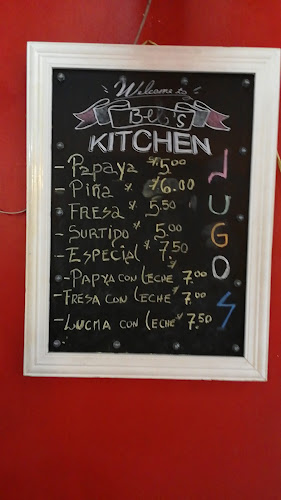 Welcome to
Beb's
KITCHEN
- Papaya S/5.00
- Piña S/6.00
- FRESA S/5.50
- SURTIDO S/5.00
- ESPECIAL S/7.50
- PAPYA CON LECHE S/7.00
- FRESA CON LECHE S/7.00
- LUCMA CON LECHE S/7.50
JUGOS